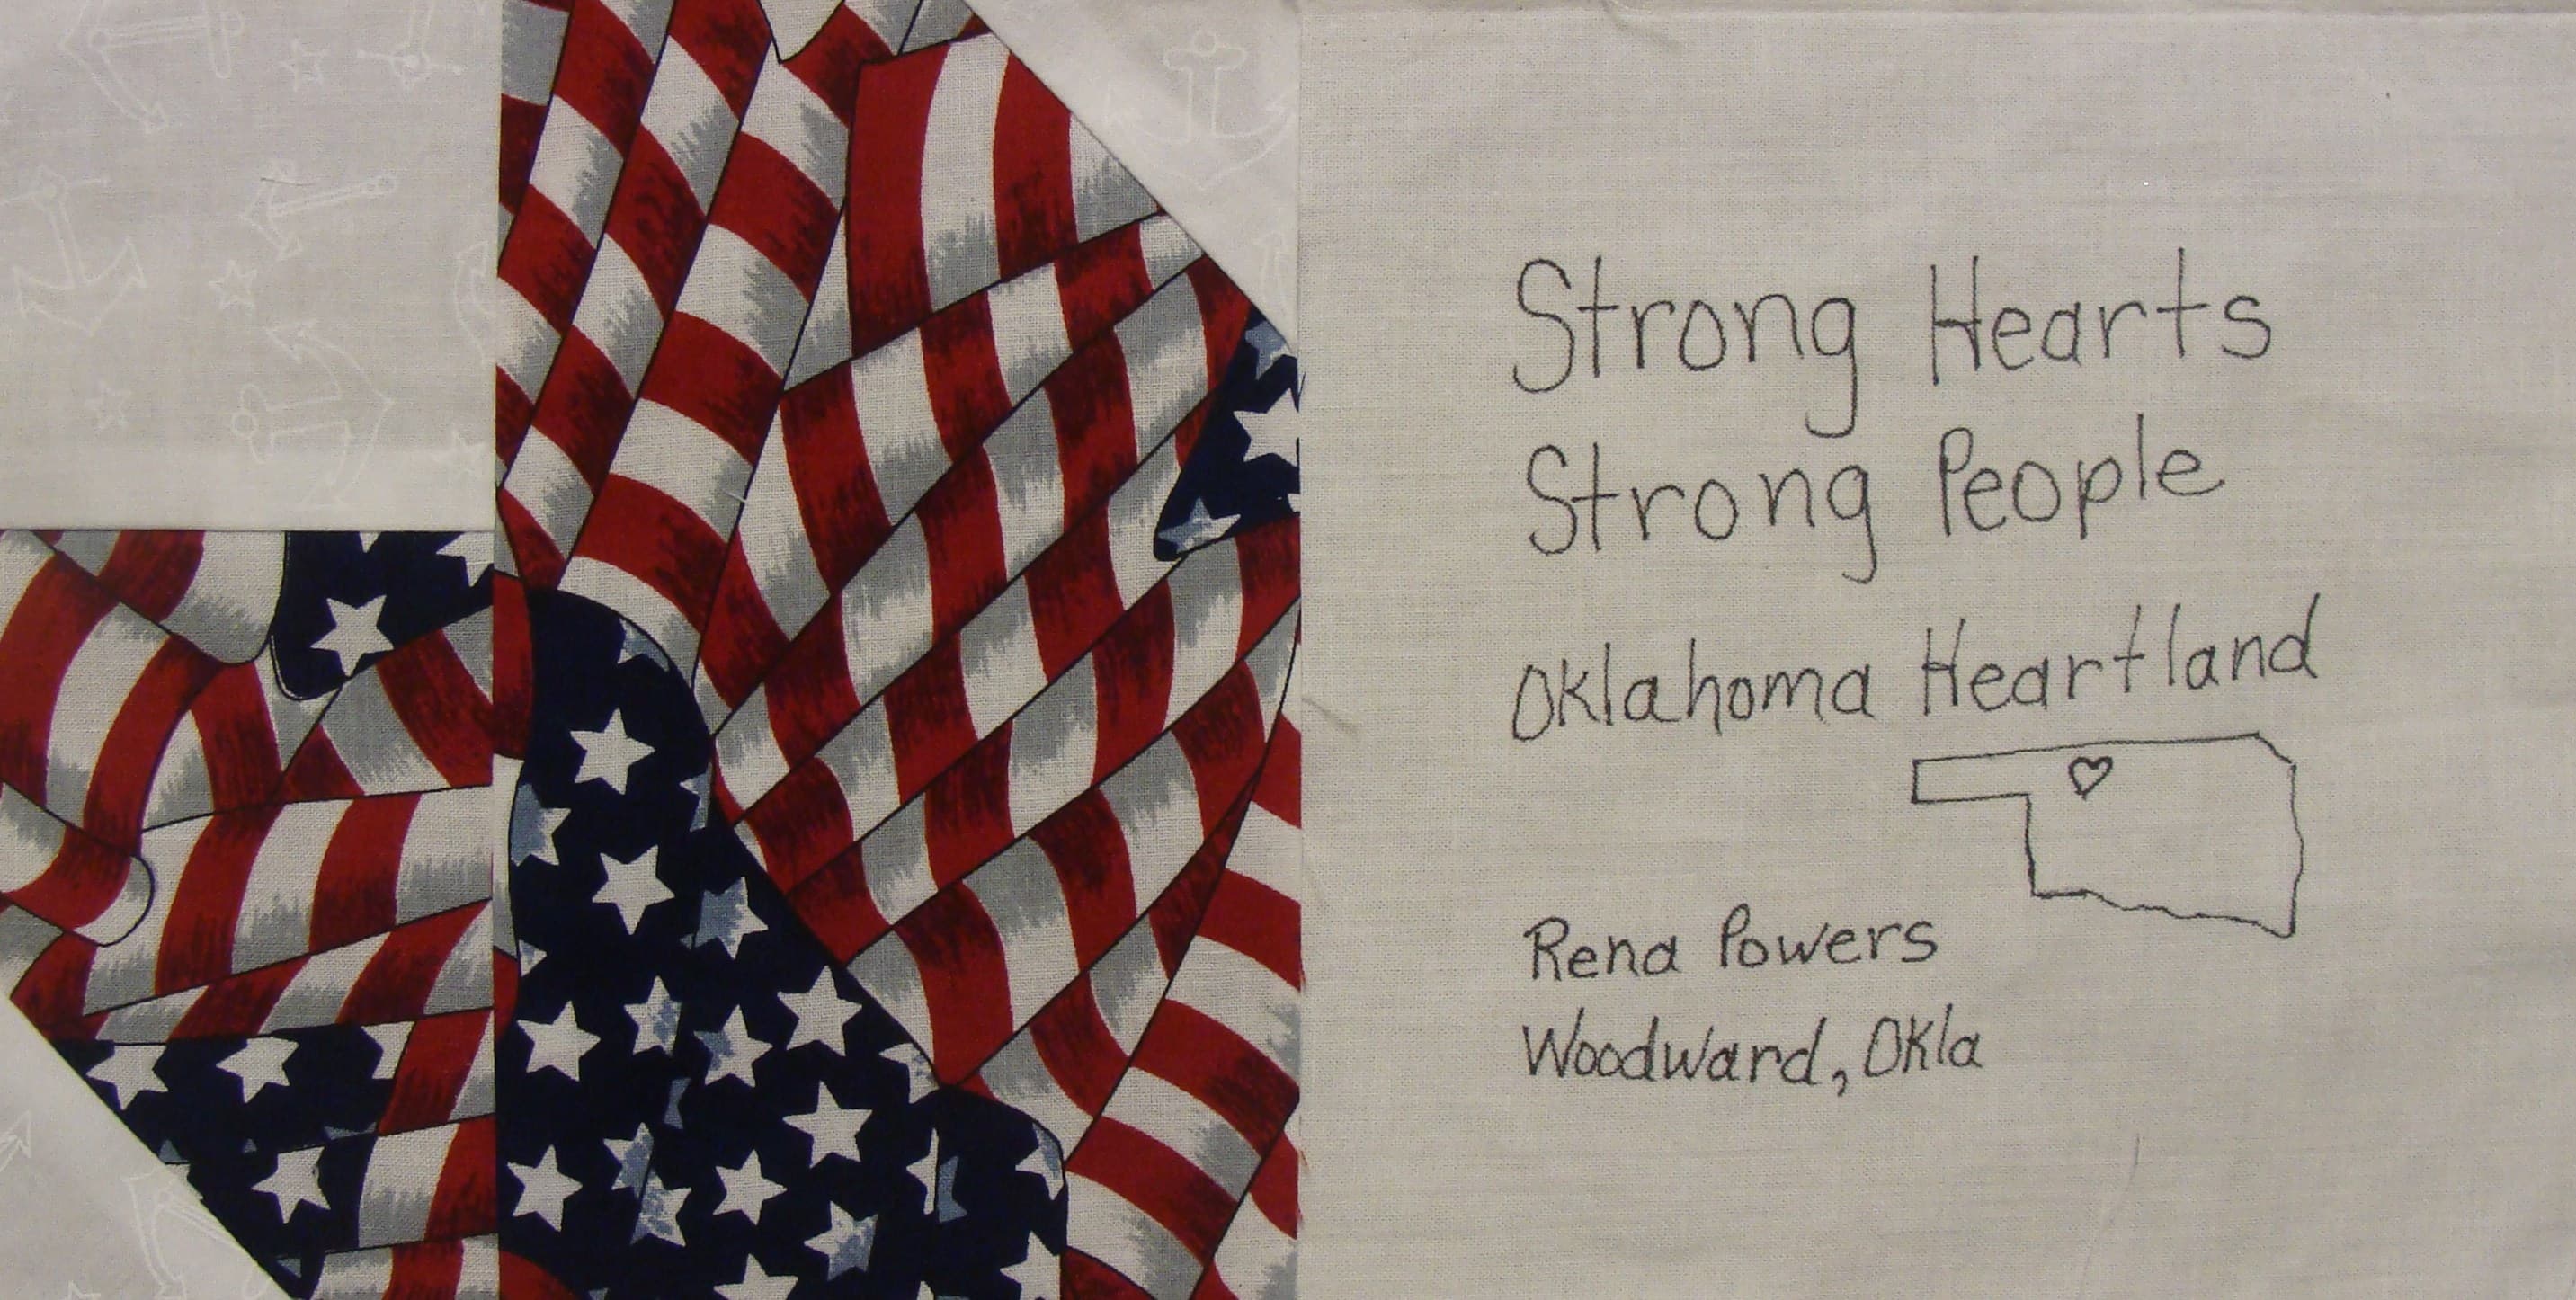 Strong Hearts
Strong People
Oklahoma Heartland
Rena Powers
Woodward, Okla